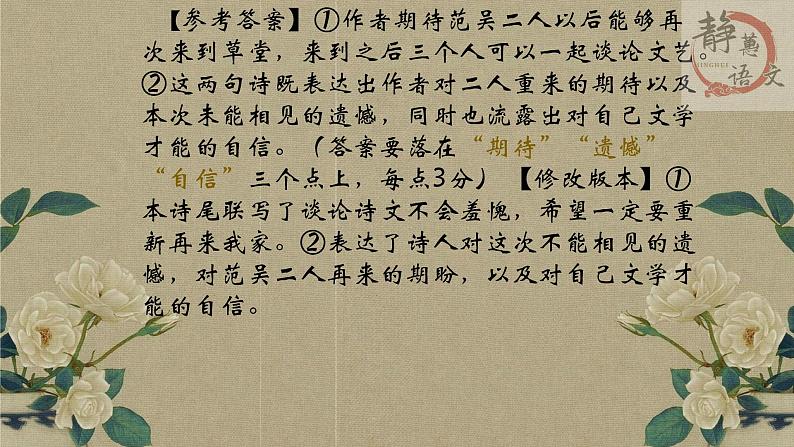 【参考答案】①作者期待范吴二人以后能够再
次来到草堂，来到之后三个人可以一起谈论文艺。
②这两句诗既表达出作者对二人重来的期待以及
本次未能相见的遗憾，同时也流露出对自己文学
才能的自信。（答案要落在“期待”“遗憾”
“自信”三个点上，每点3分）【修改版本】①
本诗尾联写了谈论诗文不会羞愧，希望一定要重
新再来我家。②表达了诗人对这次不能相见的遗
憾，对范吴二人再来的期盼，以及对自己文学才
能的自信。
静蕙
JINGHUI
语文